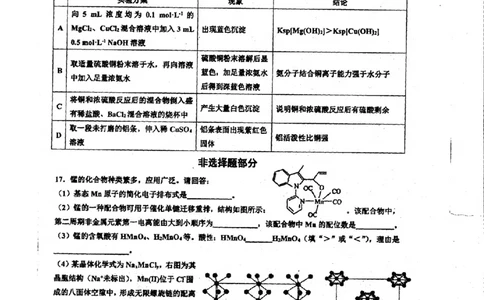 实验方案 现象 结论
A 向 5 mL 浓度均为 0.1 mol·L⁻¹ 的 MgCl₂、CuCl₂ 混合溶液中加入 3 mL 0.5 mol·L⁻¹ NaOH 溶液 出现蓝色沉淀 Ksp[Mg(OH)₂]＞Ksp[Cu(OH)₂]
B 取适量硫酸铜粉末溶于水，再向溶液中加入足量浓氨水 硫酸铜粉末溶解后显蓝色，加足量浓氨水后得到深蓝色溶液 氨分子结合铜离子能力强于水分子
C 将铜和浓硫酸反应后的混合物倒入盛有稀盐酸、BaCl₂ 混合溶液的烧杯中 产生大量白色沉淀 说明铜和浓硫酸反应后有硫酸剩余
D 取一段未打磨的铝条，伸入稀 CuSO₄ 溶液 铝条表面出现紫红色固体 铝活泼性比铜强
非选择题部分
17．锰的化合物种类繁多，应用广泛。请回答：
（1）基态 Mn 原子的简化电子排布式是
（2）锰的一种配合物可用于催化单键迁移重排，结构如图所示： 。该配合物中，
第二周期非金属元素第一电离能由大到小顺序为 ，该配合物中 Mn 的配位数是 。
（3）锰的含氧酸有 HMnO₄、H₂MnO₄ 等。酸性：HMnO₄ H₂MnO₄（填“＞”或“＜”），理由是
。
（4）某晶体化学式为 NaₓMnCl_y，右图为其
晶胞结构（Na⁺未标出），Mn(II)位于 Cl⁻围
成的八面体空隙中，形成无限螺旋链的配离
N O N Mn OC CO CO CO